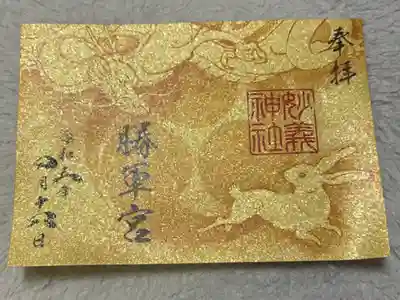 奉拝
妙義
神社
勝軍宮
令和五年
月十六日